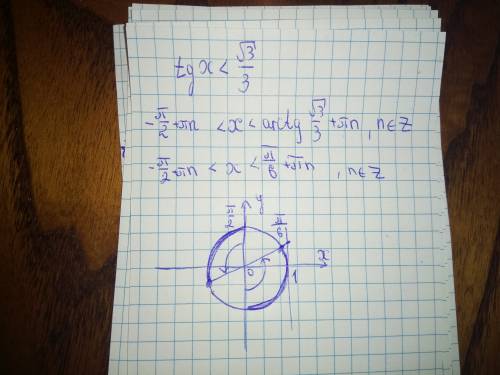 tg x < √3/3
-π/2 + πn < x < arctg √3/3 + πn, n∈Z
-π/2 + πn < x < π/6 + πn, n∈Z
y
π/2
π/6
x
0
1